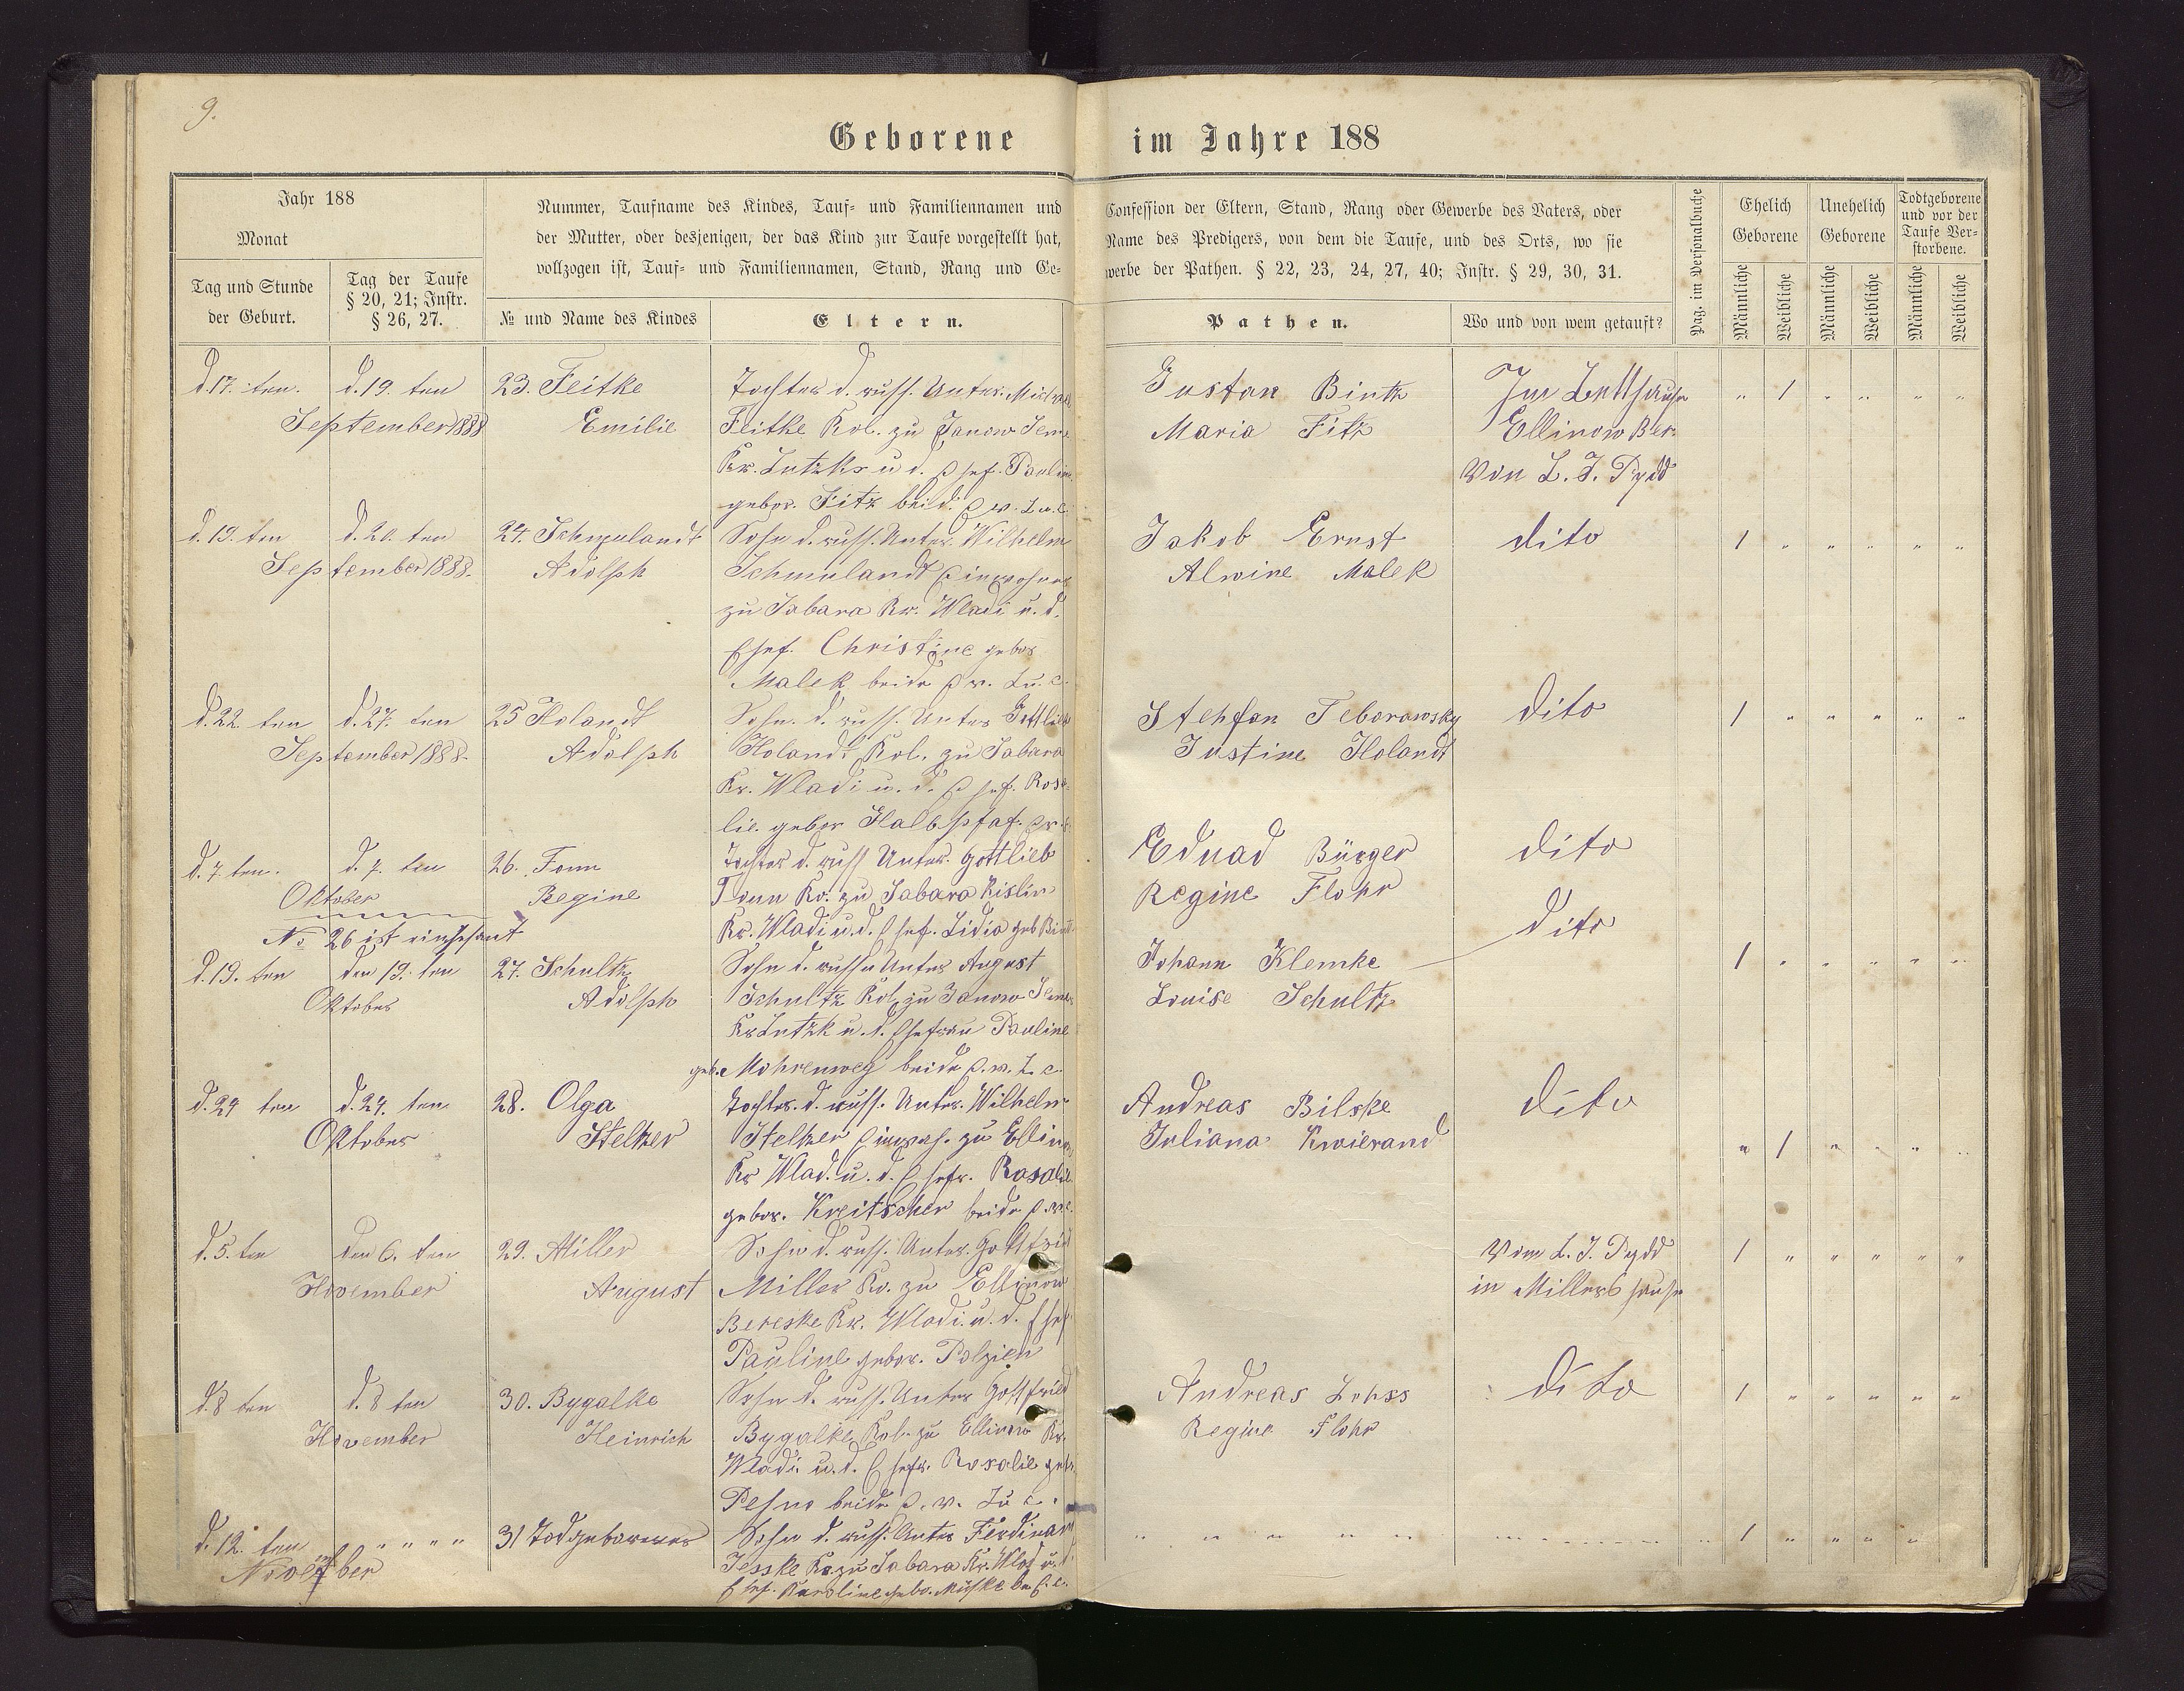 9.
Geborene im Jahre 188
Jahr 188
Monat
Tag und Stunde der Geburt.
Tag der Taufe § 20, 21; Instr. § 26, 27.
Nummer, Taufname des Kindes, Tauf- und Familiennamen und
der Mutter, oder desjenigen, der das Kind zur Taufe vorgestellt hat,
vollzogen ist, Tauf- und Familiennamen, Stand, Rang und Ge-
№ und Name des Kindes
Eltern.
Confession der Eltern, Stand, Rang oder Gewerbe des Vaters, oder
Name des Predigers, von dem die Taufe, und des Orts, wo sie
werbe der Pathen. § 22, 23, 24, 27, 40; Instr. § 29, 30, 31.
Pathen.
Wo und von wem getauft?
Pag. im Personalbuche
Ehelich Geborene
Unehelich Geborene
Todtgeborene und vor der Taufe Verstorbene.
Männliche
Weibliche
Männliche
Weibliche
Männliche
Weibliche
d. 17. ten. d. 19. ten
September 1888
23. Feitke
Emilie
Tochter d. russ. Unter.
Feitke Kol. zu Janow
Kr. Lutzk u d. Ehef. Pauline
gebor. Fitz beide ew. Lu. c.
Gustav Bintz
Maria Fitz
Im Bethause
Ellinow Ber.
Von L. J. Dydd
" / " " " "
d. 19. ten d. 20. ten
September 1888.
24. Schmulandt
Adolph
Sohn d. russ. Unter. Wilhelm
Schmulandt Einwohner
zu Sabara Kr. Wladi u. d.
Ehef. Christine gebor
Malek beide ew. Lu. c.
Jakob Ernst
Alwine Malek
dito
/ " " " " "
d. 22. ten d. 27. ten
September 1888.
25 Holandt
Adolph
Sohn. d. russ. Unter Gottlieb
Holandt Kol. zu Sabara
Kr. Wladi u. d. Ehef. Rosa-
lie. gebor Halbpfaf.
Stehfan Teborawsky
Justine Holandt
dito
/ " " " " "
d. 7. ten. d. 7. ten
Oktober
No 26 ist
26. Tonn
Regine
Tochter d. russ Unter. Gottlieb
Tonn Ko. zu Sabara
Kr. Wladi u. d. Ehef. Lidia geb
Eduad Bürger
Regine Flohr
dito
d. 19. ten den 19. ten
Oktober
27. Schultz
Adolph
Sohn d. russn Unter August
Schultz Kol. zu Janow
Kr Lutzk u. d. Ehefrau Pauline
geb. Mohrenweg beide e. w. L. c.
Johann Klemke
Louise Schultz
dito
/ " " " " "
d. 24 ten d. 24. ten
Oktober
28. Olga
Stelzer
Tochter. d. russ. Unter. Wilhelm
Stelzer Einwoh. zu Ellinow
Kr Wlad. u. d. Ehefr. Rosalie
gebor. Kreitscher beide
Andreas Bilske
Juliana Kwierand
dito
" / " " " "
d. 5. ten den 6. ten
November
29. Miller
August
Sohn d. russ. Unter. Gottfried
Miller Ko. zu Ellinow
Bereske Kr. Wladi. u. d. Ehef
Pauline gebor. Polzien
Vom L. J. Dydd
in Millers hause
/ " " " " "
d. 8 ten d. 8 ten
November
30. Bygalke
Heinrich
Sohn d. russ. Unter Gottfried
Bygalke Kol. zu Ellinow Kr.
Wladi. u. d. Ehefr. Rosalie geb.
beide e. w. Lu c.
Andreas Lohss
Regine Flohr
dito
/ " " " " "
d. 12. ten " " " "
November
31 Todgeborener
Sohn d. russ. Unter Ferdinand
Jesske Ko. zu Sabara Kr. Wlad u. d
Ehef. Karoline gebo.
" " " " "
/ " " " "